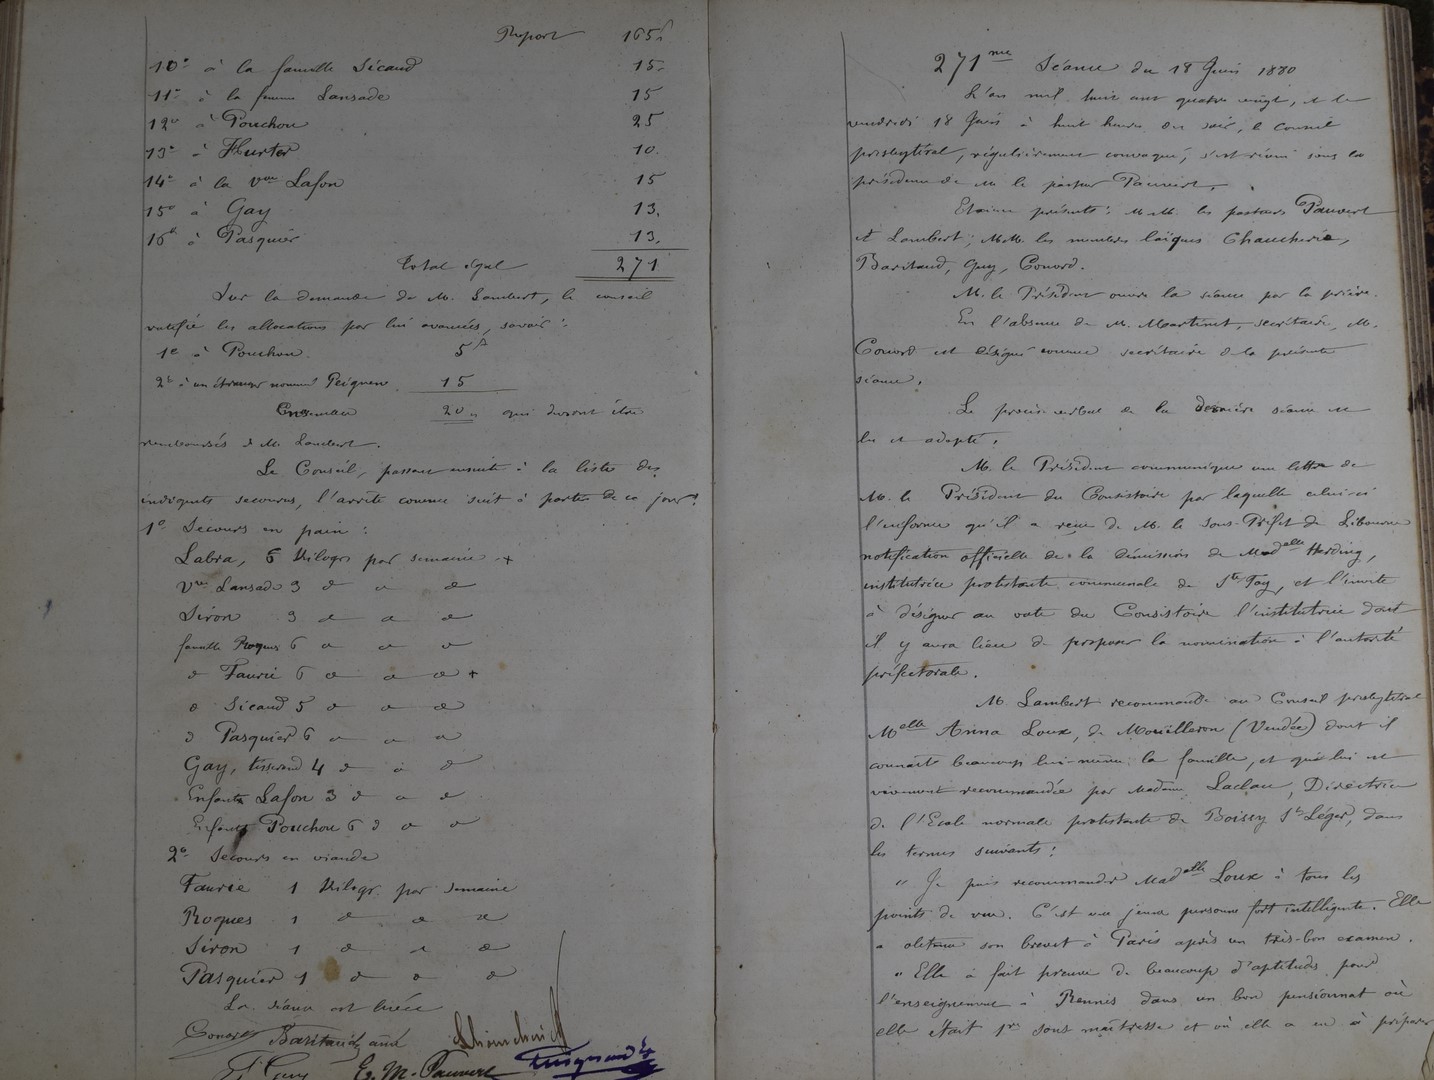 Report 165
10° à la famille Sicaud 15.
11° à la femme Lansade 15
12° à Pouchou 25
13° à Hurter 10.
14° à la Vve Lafon 15
15° à Gay 13.
16° à Pasquier 13.
Total égal 271
Sur la demande de M. Lambert, le conseil
ratifie les allocations par lui avancées, savoir :
1° à Pouchou 5 f
2° à un étranger nommé Peigneu 15
Ensemble 20 „ qui devront être
remboursés à M. Lambert.
Le Conseil, passant ensuite à la liste des
indigents secourus, l'arrête comme suit à partir de ce jour :
1° Secours en pain :
Labra, 6 kilogr par semaine +
Vve Lansade 3 d° — d°
Siron 3 d° — d°
famille Roques 6 d° — d°
d° Faurie 6 d° — d° +
d° Sicaud 5 d° — d°
d° Pasquier 6 d° — d°
Gay, tisserand 4 d° — d°
Enfants Lafon 3 d° — d°
Enfants Pouchou 6 d° — d°
2° Secours en viande
Faurie 1 kilogr. par semaine
Roques 1 d° — d°
Siron 1 d° — d°
Pasquier 1 d° — d°
La séance est levée
Conord Baritaud aîné
Ez. M. Pauvert
271me Séance du 18 Juin 1880
L'an mil huit cent quatre vingt, et le
vendredi 18 Juin à huit heures du soir, le Conseil
presbytéral, régulièrement convoqué, s'est réuni sous la
présidence de M. le pasteur Pauvert.
Etaient présents : M.M. les pasteurs Pauvert
et Lambert ; M.M. les membres laïques Chaucherie,
Baritaud, Guy, Conord.
M. le Président ouvre la séance par la prière.
En l'absence de M. Martinet, secrétaire, M.
Conord est désigné comme secrétaire de la présente
séance.
Le procès-verbal de la dernière séance est
lu et adopté.
M. le Président communique une lettre de
M. le Président du Consistoire par laquelle celui-ci
l'informe qu'il a reçu de M. le Sous-Préfet de Libourne
notification officielle de la démission de Madelle Harding,
institutrice protestante communale de Ste Foy, et l'invite
à désigner au vote du Consistoire l'institutrice dont
il y aura lieu de proposer la nomination à l'autorité
préfectorale.
M. Lambert recommande au Conseil presbytéral
Melle Anna Loux, de Mouilleron (Vendée) dont il
connaît beaucoup lui-même la famille, et qui lui est
vivement recommandée par Madame Laclau, Directrice
de l'Ecole normale protestante de Boissy St Léger, dans
les termes suivants :
" Je puis recommander Madelle Loux à tous les
points de vue. C'est une jeune personne fort intelligente. Elle
a obtenu son brevet à Paris après un très-bon examen.
" Elle a fait preuve de beaucoup d'aptitudes pour
l'enseignement à Rennes dans un bon pensionnat où
elle était 1re sous maîtresse et où elle a eu à préparer